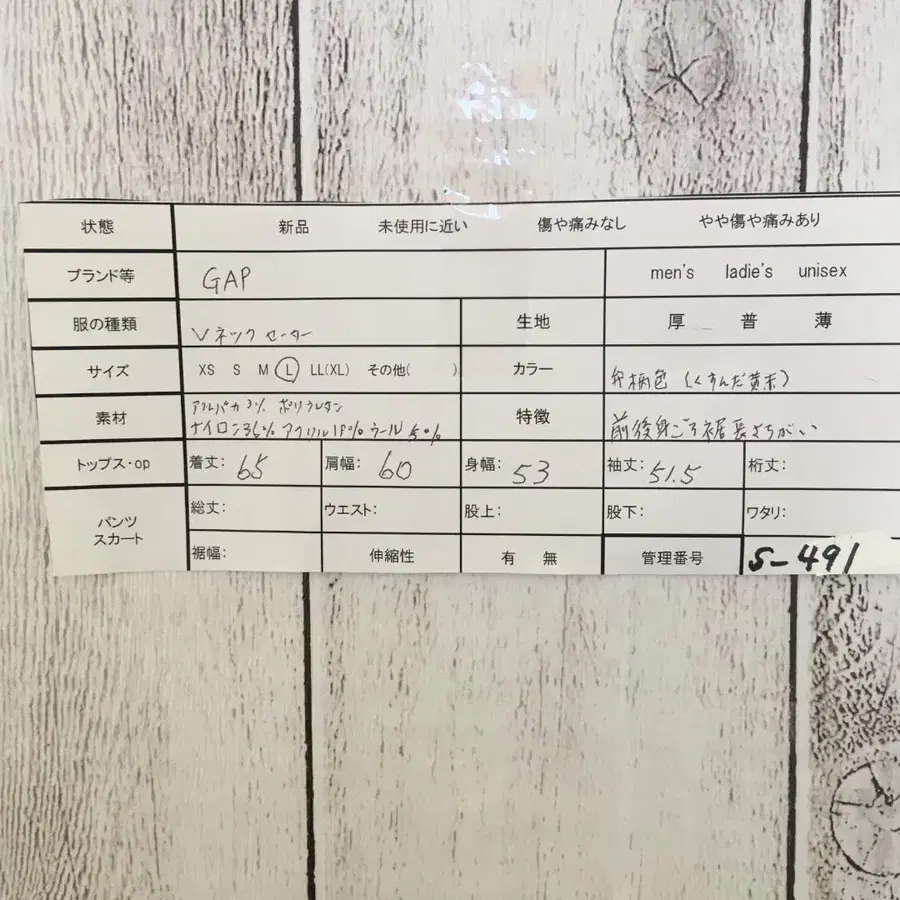 状態 新品 未使用に近い 傷や痛みなし やや傷や痛みあり
ブランド等 GAP men's ladie's unisex
服の種類 Vネックセーター 生地 厚 普 薄
サイズ XS S M L LL(XL) その他( ) カラー 弁柄色 (くすんだ黄赤)
素材 アルパカ3% ポリウレタン
ナイロン36% アクリル19% ウール 特徴 前後身ごろ裾長さちがい
トップス・op 着丈: 65 肩幅: 60 身幅: 53 袖丈: 51.5 裄丈:
パンツ
スカート
総丈: ウエスト: 股上: 股下: ワタリ:
裾幅: 伸縮性 有 無 管理番号 S-491